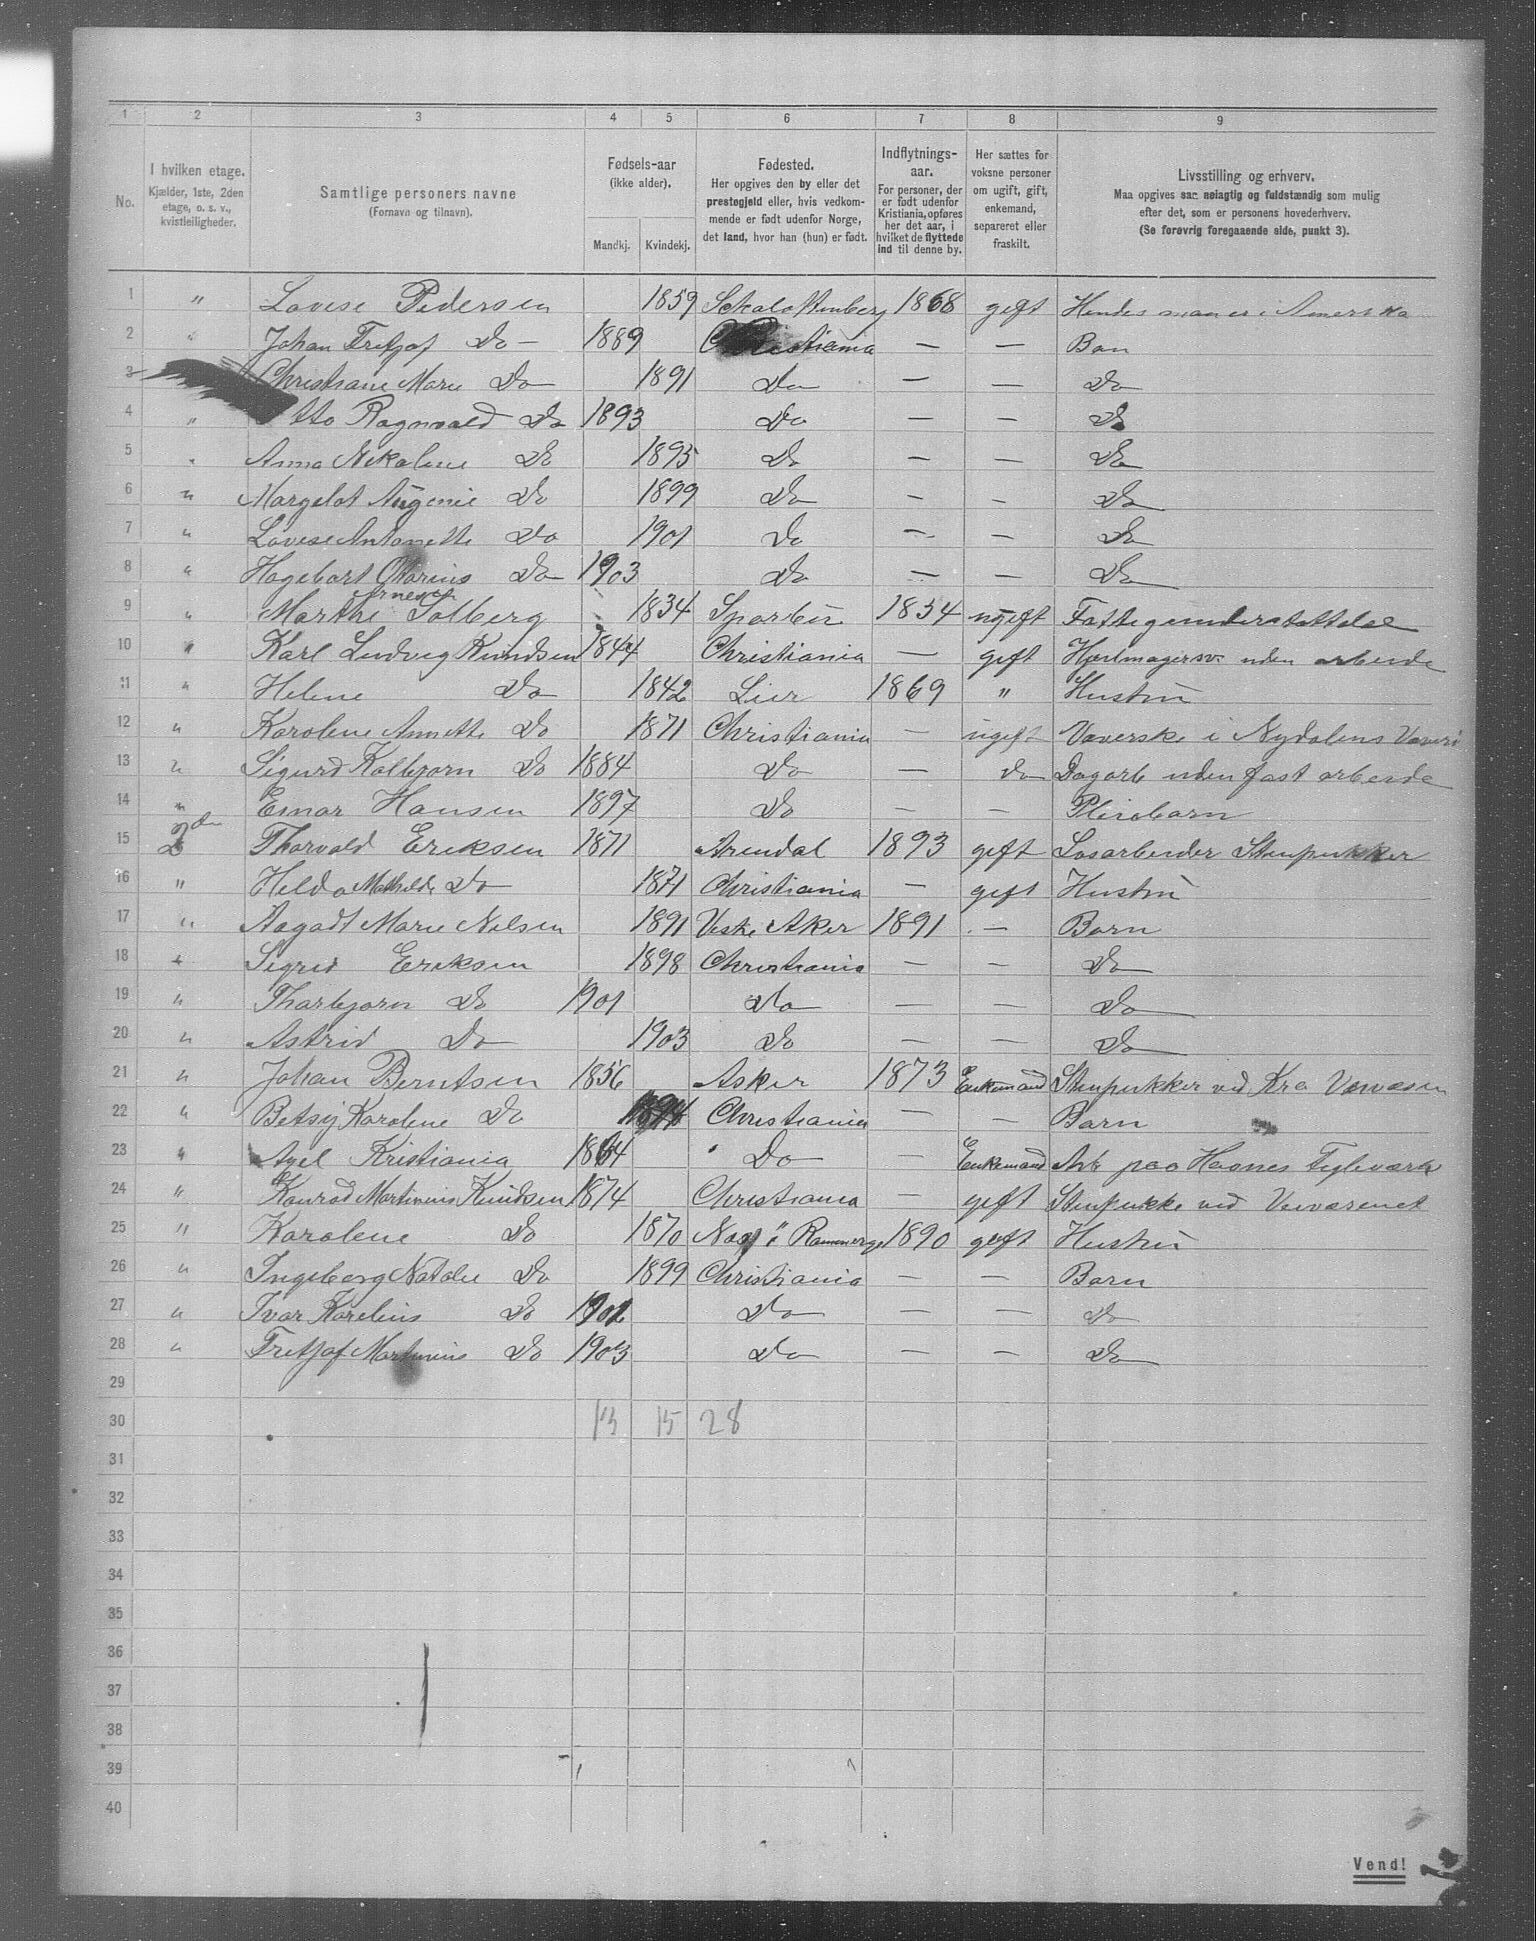 1 2 3 4 5 6 7 8 9
No.
I hvilken etage.
Kjælder, 1ste, 2den
etage, o. s. v.,
kvistleiligheder.
Samtlige personers navne
(Fornavn og tilnavn).
Fødsels-aar
(ikke alder).
Mandkj. Kvindekj.
Fødested.
Her opgives den by eller det
prestegjeld eller, hvis vedkom-
mende er født udenfor Norge,
det land, hvor han (hun) er født.
Indflytnings-
aar.
For personer, der
er født udenfor
Kristiania, opføres
her det aar, i
hvilket de flyttede
ind til denne by.
Her sættes for
voksne personer
om ugift, gift,
enkemand,
separeret eller
fraskilt.
Livsstilling og erhverv.
Maa opgives saa nøiagtig og fuldstændig som mulig
efter det, som er personens hovederhverv.
(Se forøvrig foregaaende side, punkt 3).
1 " Lovise Pedersen 1859 1868 gift Hendes man er i Amerika
2 " Johan Fretjof Do 1889 Christiania — — Ban
3 Christiane Marie Do 1891 Do — — Do
4 " Otto Ragnvald Do 1893 Do — — Do
5 " Anna Nikoline Do 1895 Do — — Do
6 " Margelot Augenie Do 1899 Do — — Do
7 " Lovise Antonette Do 1901 Do — — Do
8 " Hagebart Otarius Do 1903 Do — — Do
9 " Marthe Arnesen Solberg 1834 Sparbu 1854 ugift Fattigunderstottelse
10 " Karl Ludvig Knudsen 1844 Christiania — gift Hjulmagersv uden arbeide
11 " Helene Do 1842 Lier 1869 " Hustru
12 " Karolene Annette Do 1871 Christiania — ugift Væverske i Nydalens Væveri
13 " Sigurd Kolbjorn Do 1884 Do — Do Dagarb uden fast arbeide
14 " Einar Hansen 1897 Do — — Pleiebarn
15 2den Thorvald Eriksen 1871 Arendal 1893 gift Losarbeider Stenpukker
16 " Helda Mathilde Do 1871 Christiania — gift Hustru
17 " Aagadt Marie Nelsen 1891 Vestre Aker 1891 — Barn
18 " Sigrid Eriksen 1898 Christiania — — Do
19 " Thorbjorn Do 1901 Do — — Do
20 " Astrid Do 1903 Do — — Do
21 " Johan Berntsen 1856 Asker 1873 Enkemand Stenpukker ved Kra Veivæsen
22 " Betsy Karolene Do 1894 Christiania — — Barn
23 " Axel Kristiania 1864 Do — Enkemand Arb paa Hasnes Teglværk
24 " Konrad Martinius Knudsen 1874 Christiania — gift Stenpukke ved Veivæsenet
25 " Karolene Do 1870 Næs i Romerige 1890 gift Hustru
26 " Ingeborg Natalie Do 1899 Christiania — — Barn
27 " Ivar Karelius Do 1901 Do — — Do
28 " Fretjof Martinius Do 1903 Do — — Do
29
30 13 15 28
31
32
33
34
35
36
37
38
39
40
Vend!